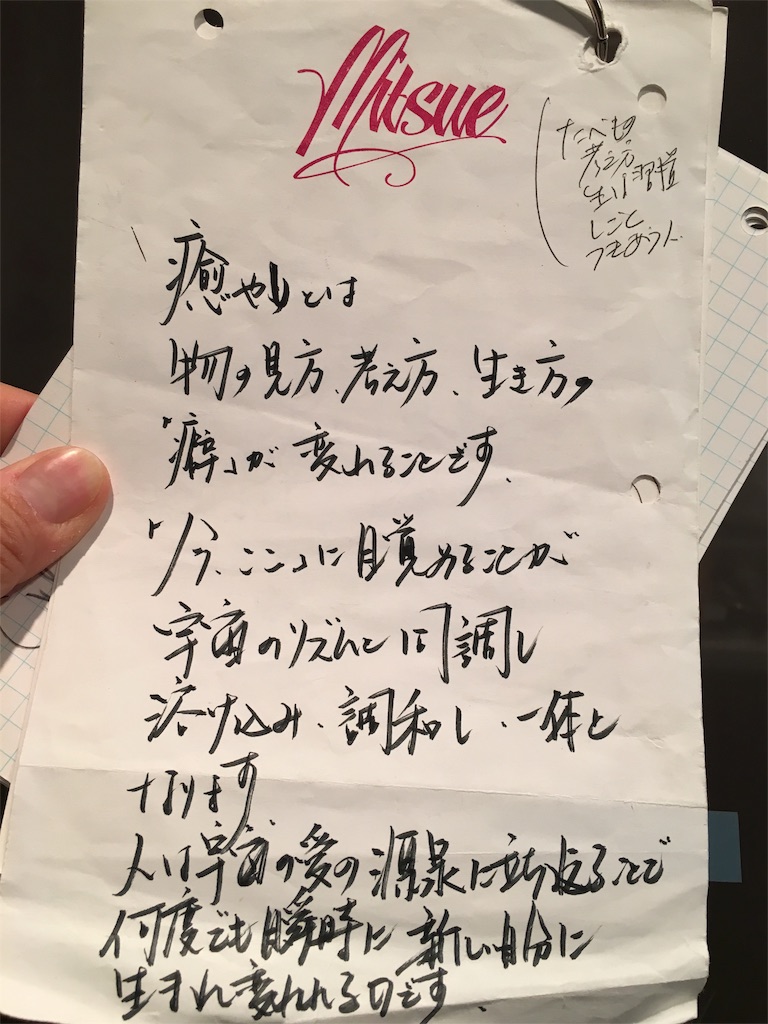 Mitsue
たべもの
考え方
生活習慣
しごと
つきあう人
癒やしとは
物の見方、考え方、生き方の
「癖」が変わることです。
「今、ここ」に目覚めることが
宇宙のリズムと同調し
溶け込み、調和し、一体と
なります
人は宇宙の愛の源泉に立ち返ることで
何度でも瞬時に新しい自分に
生まれ変われるのです。